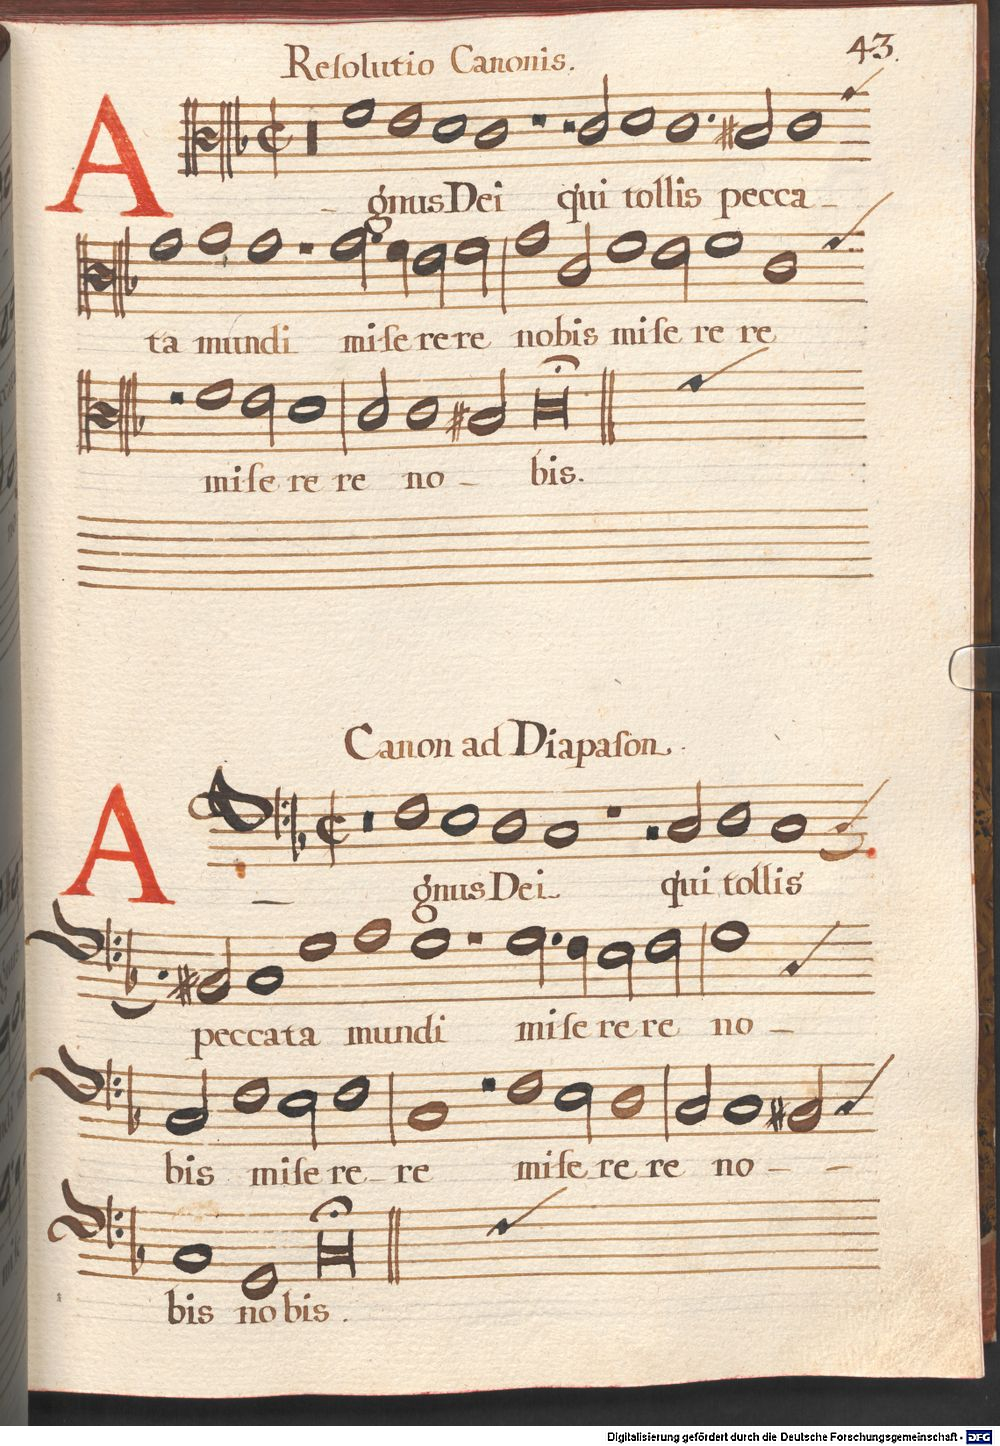 Resolutio Canonis.
43.
A - gnus Dei qui tollis pecca -
ta mundi miserere nobis mise re re
mise re re no - bis.
Canon ad Diapason.
A - gnus Dei qui tollis
peccata mundi mise re re no -
bis mise re - re mise re re no - -
bis nobis.
Digitalisierung gefördert durch die Deutsche Forschungsgemeinschaft - DFG